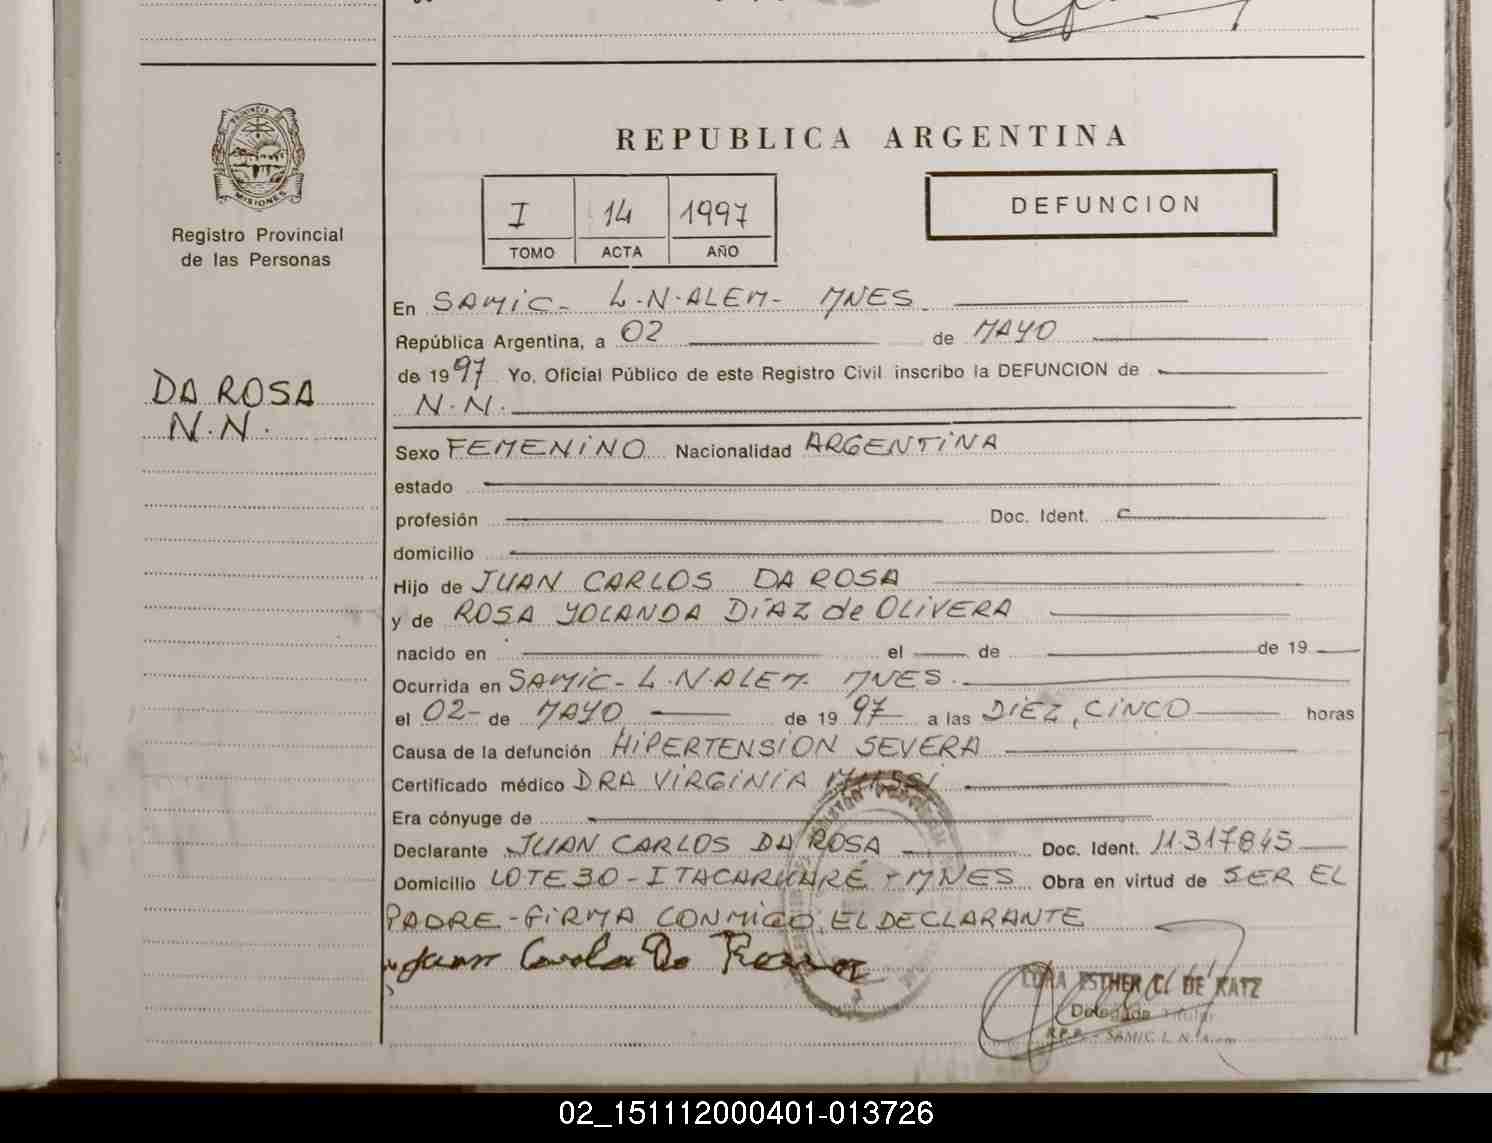 REPUBLICA ARGENTINA
PROVINCIA DE
MISIONES
Registro Provincial
de las Personas
I 14 1997
TOMO ACTA AÑO
DEFUNCION
En SAMIC- L-N-ALEM- MNES
República Argentina, a 02 de MAYO
de 1997 Yo, Oficial Público de este Registro Civil inscribo la DEFUNCION de
N.N.
DA ROSA
N.N.
Sexo FEMENINO Nacionalidad ARGENTINA
estado
profesión Doc. Ident.
domicilio
Hijo de JUAN CARLOS DA ROSA
y de ROSA YOLANDA DIAZ de OLIVERA
nacido en el de de 19
Ocurrida en SAMIC- L.N.ALEM MNES.
el 02- de MAYO de 1997 a las DIEZ, CINCO horas
Causa de la defunción HIPERTENSION SEVERA
Certificado médico DRA VIRGINIA
Era cónyuge de
Declarante JUAN CARLOS DA ROSA Doc. Ident. 11.317845
Domicilio LOTE 30 - ITACARUARÉ - MNES Obra en virtud de SER EL
PADRE - FIRMA CONMIGO, EL DECLARANTE
Juan Carlos Da Rosa
ESTHER C. DE KATZ
Delegada Titular
R.P.P. - SAMIC L. N. Alem
02_151112000401-013726